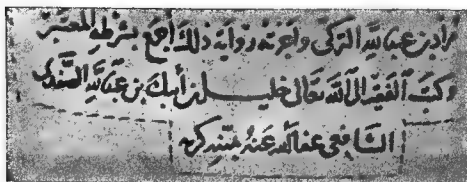 بن عبد الله التركي واجزته رواية ذلك اجمع بشرطه المعتبر
وكتب الفقير الى الله تعالى خليل بن ايبك بن عبد الله الصفدي
الشافعي عفا الله عنه بمنه وكرمه